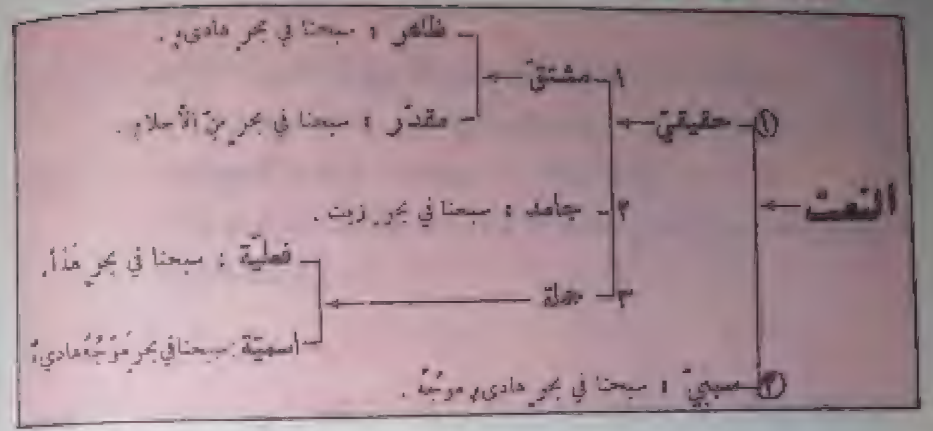 النعت
① حقيقيّ
١ ـ مشتقّ
ظاهر : سبحنا في بحرٍ هادىءٍ .
مقدّر : سبحنا في بحرٍ منَ الأحلامِ .
٢ ـ جامد : سبحنا في بحرٍ زيت .
٣ ـ جملة
فعليّة : سبحنا في بحرٍ هَدَأَ.
اسميّة : سبحنا في بحرٍ مَوْجُهُ هادىءٌ
② سببيّ : سبحنا في بحرٍ هادىءٍ موجُهُ .